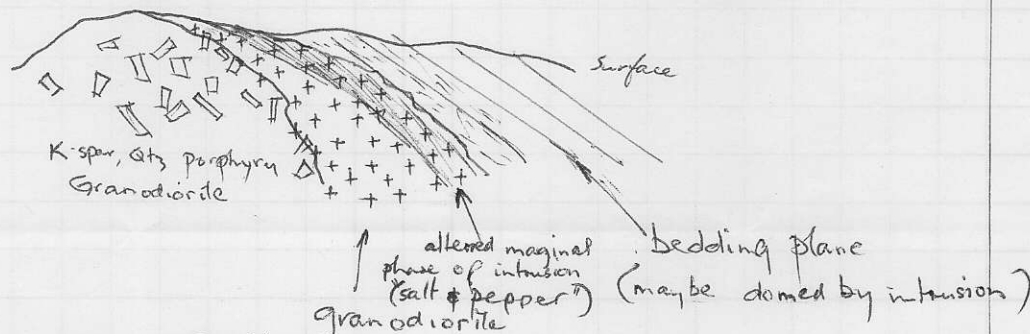 Surface
K-spar, Qtz porphyry
Granodiorite
altered maginal
phase of intrusion
("salt & pepper")
granodiorite
bedding plane
(maybe domed by intrusion)